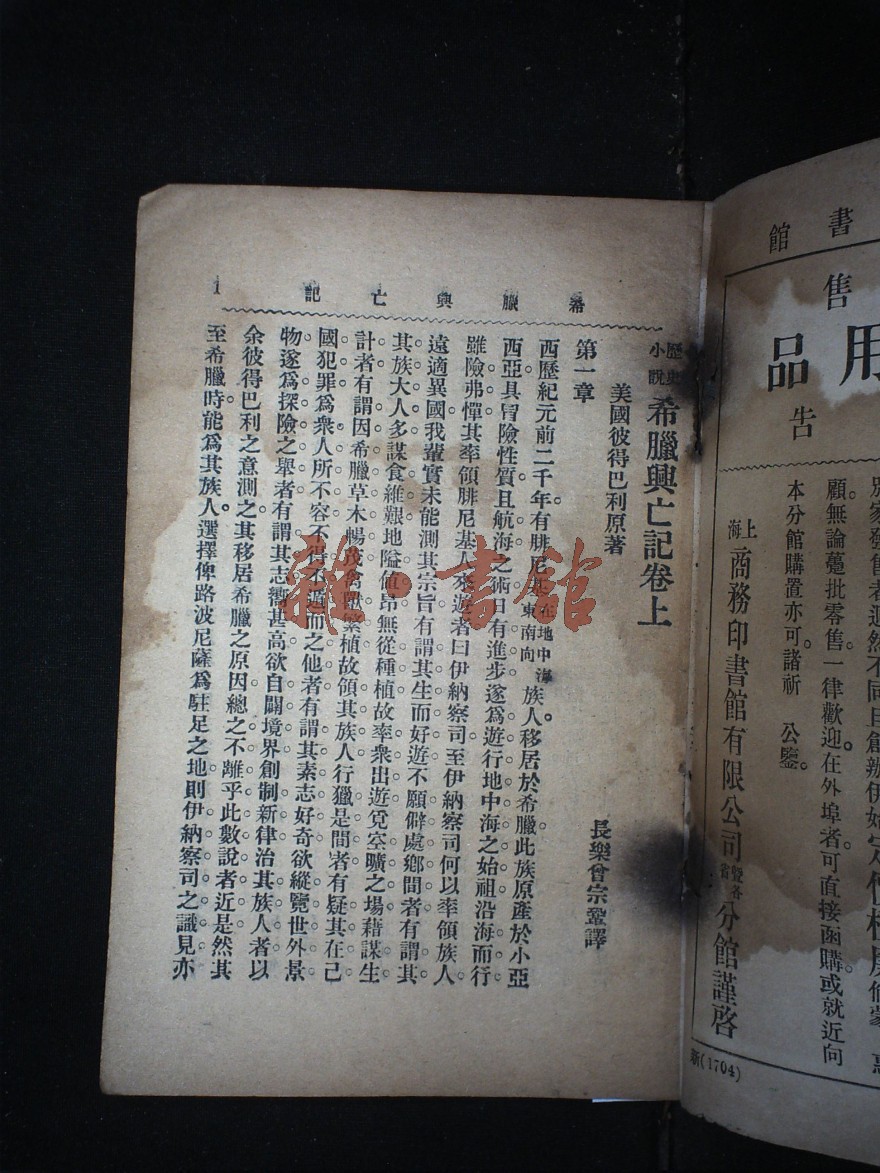 希臘興亡記 1
歷史小說 希臘興亡記卷上
美國彼得巴利原著
長樂曾宗鞏譯
第一章
西歷紀元前二千年有腓尼基在地中海東南向族人移居於希臘此族原產於小亞
西亞具冒險性質且航海之術日有進步遂爲遊行地中海之始祖沿海而行
雖險弗憚其率領腓尼基人來遊者曰伊納察司至伊納察司何以率領族人
遠適異國我輩實未能測其宗旨有謂其生而好遊不願僻處鄉間者有謂其
其族大人多謀食維艱地隘値昂無從種植故率衆出遊覓空曠之場藉謀生
計者有謂因希臘草木暢茂禽獸繁植故領其族人行獵是間者有疑其在己
國犯罪爲衆人所不容不得不遁而之他者有謂其素志好奇欲縱覽世外景
物遂爲探險之舉者有謂其志衢甚高欲自闢境界創制新律治其族人者以
余彼得巴利之意測之其移居希臘之原因總之不離乎此數說者近是然其
至希臘時能爲其族人選擇俾路波尼薩爲駐足之地則伊納察司之識見亦
雜·書館
書館
售
用品
告
別家發售者迥然不同自創辦伊始定價極廉倘蒙 惠
顧無論躉批零售一律歡迎在外埠者可直接函購或就近向
本分館購置亦可諸祈 公鑒
上海商務印書館有限公司暨各省分館謹啓
新(1704)